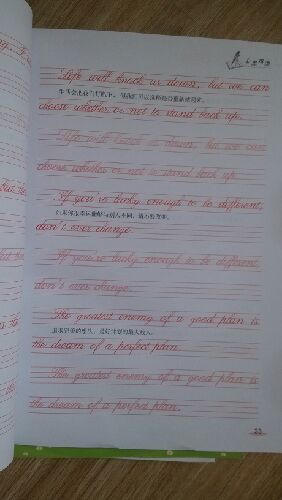 Life will knock us down, but we can
choose whether or not to stand back up.
Life will knock us down, but we can
choose whether or not to stand back up.
If you're lucky enough to be different,
don't ever change.
If you're lucky enough to be different,
don't ever change.
The greatest enemy of a good plan is
the dream of a perfect plan.
The greatest enemy of a good plan is
the dream of a perfect plan.